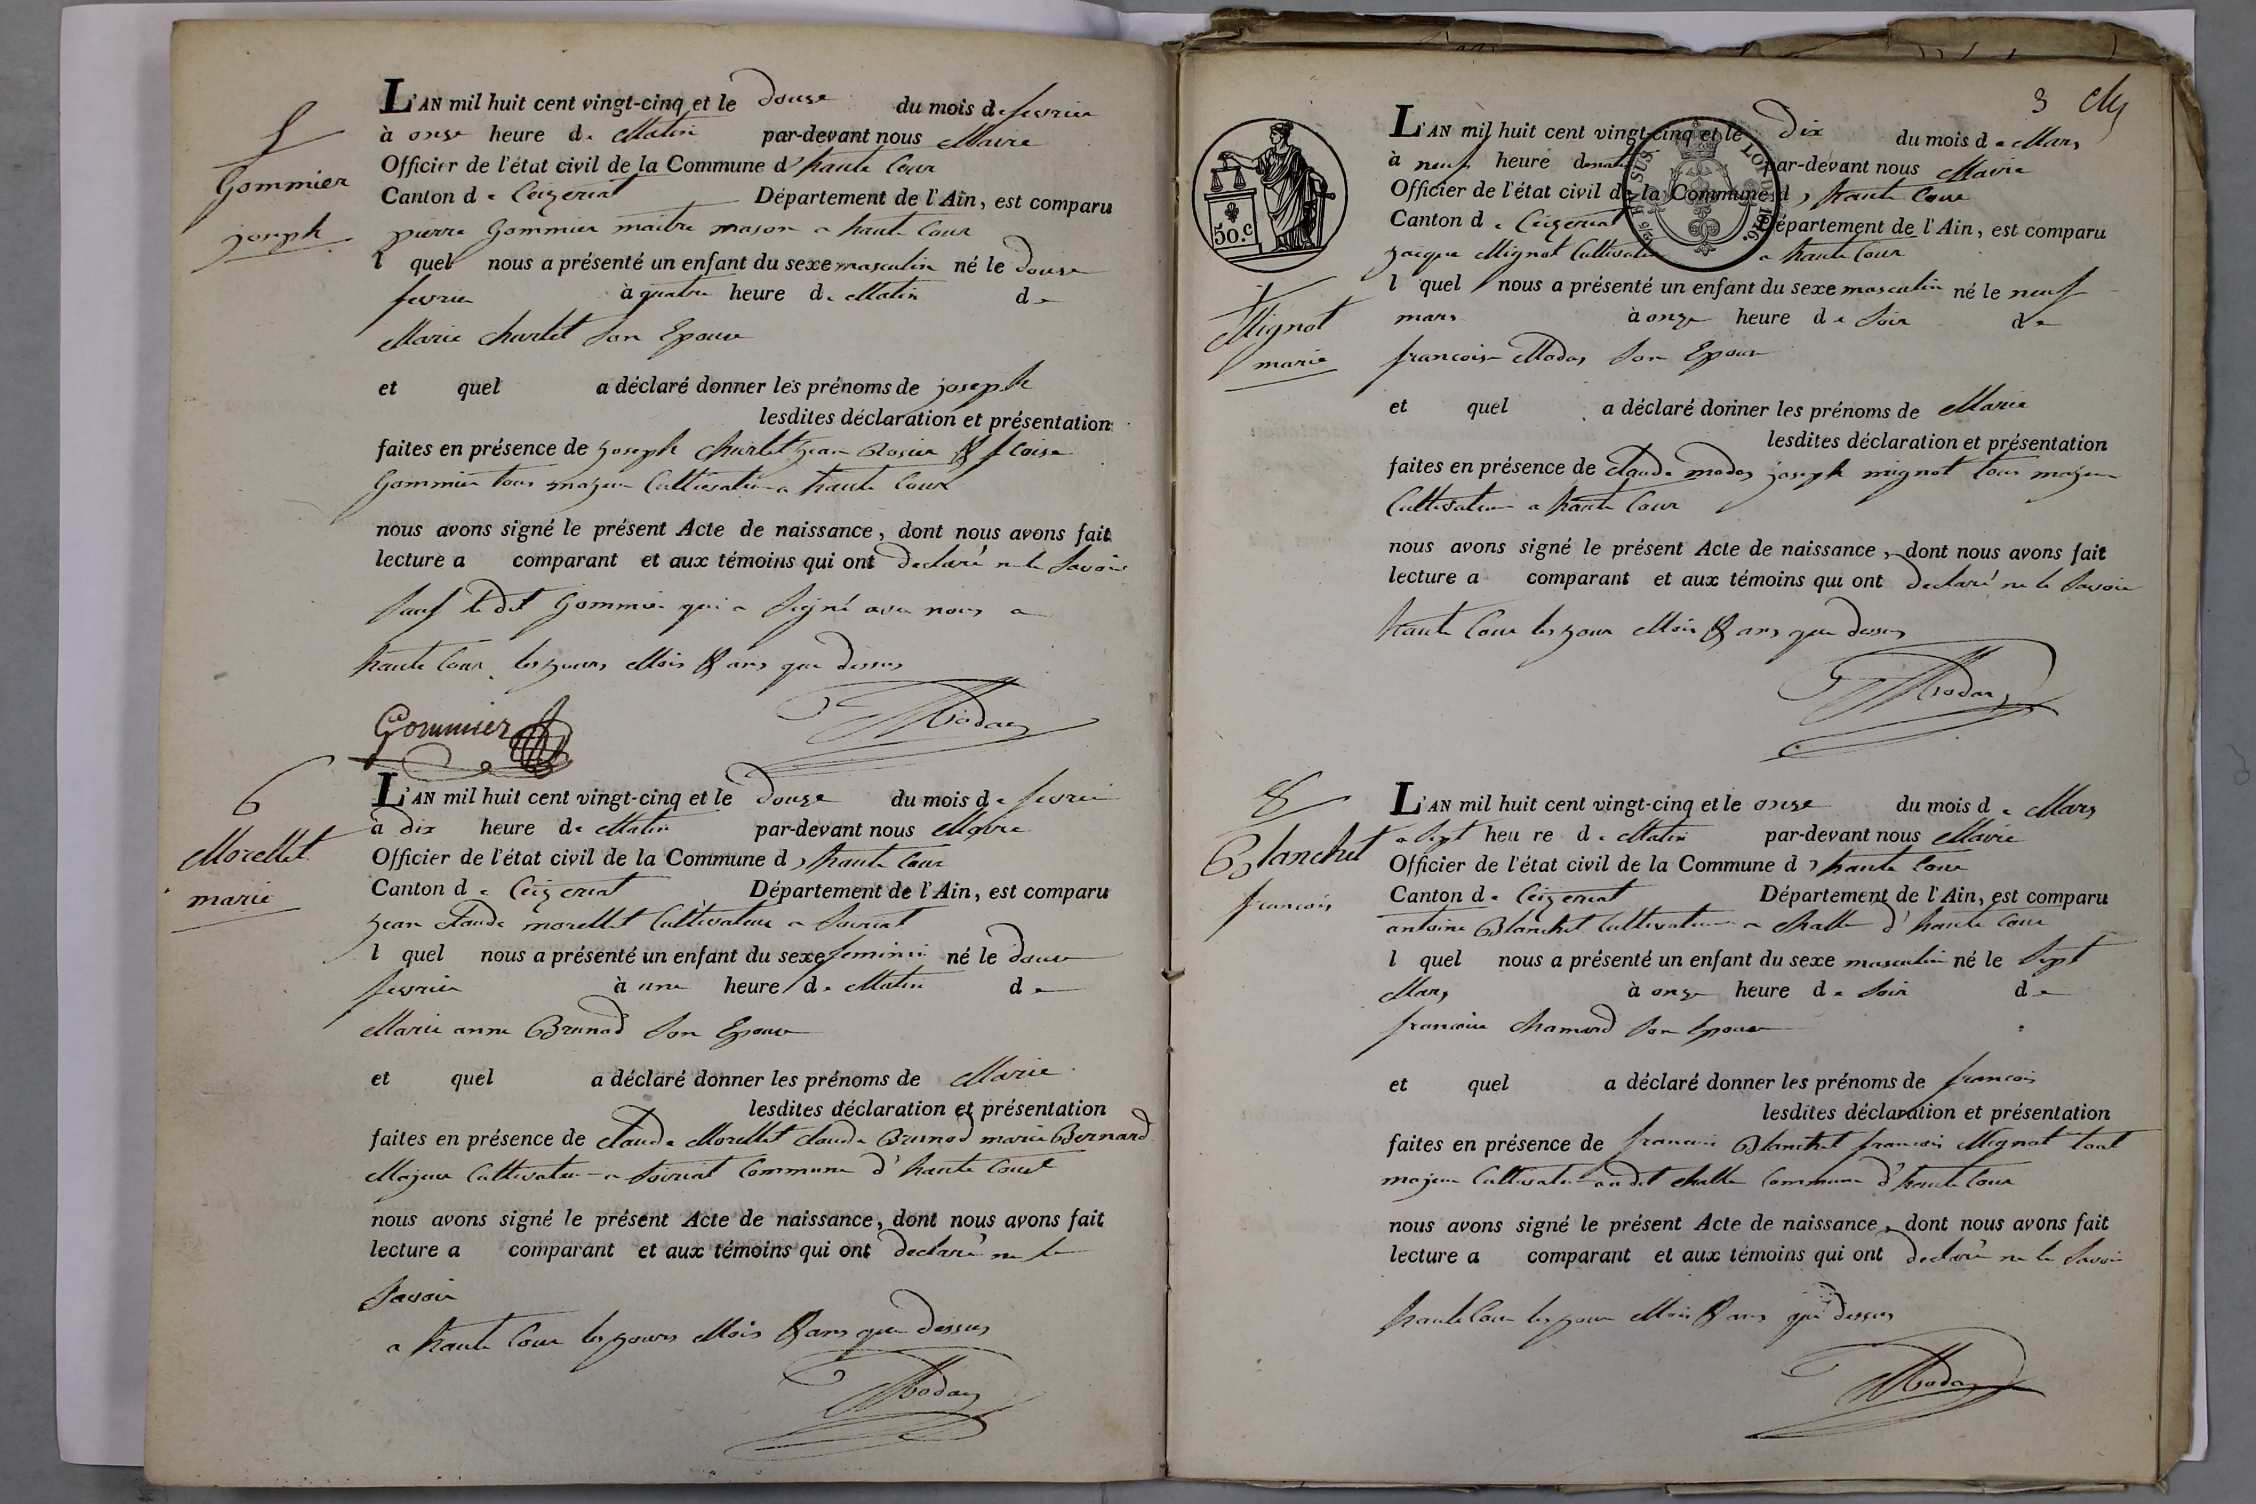 5
Gommier
joseph
L'AN mil huit cent vingt-cinq et le douse du mois de fevrier
à onse heure de Matin par-devant nous Maire
Officier de l'état civil de la Commune d'haute Cour
Canton de Ceizeriat Département de l'Ain, est comparu
pierre Gommier maitre mason a haute Cour
l quel nous a présenté un enfant du sexe masculin né le douse
fevrier à quatre heure de Matin de
Marie Charlet Son Epouse
et quel a déclaré donner les prénoms de joseph
lesdites déclaration et présentation
faites en présence de joseph Charlet jean Rosier &
Gommier tous majeur Cultivateur a haute Cour
nous avons signé le présent Acte de naissance, dont nous avons fait
lecture a comparant et aux témoins qui ont declaré ne le Savoir
Sauf le dit Gommier qui a Signé avec nous a
haute Cour les jours Mois & ans que dessus
Gommier Modas
6
Morellet
marie
L'AN mil huit cent vingt-cinq et le douze du mois de fevrier
à dix heure de Matin par-devant nous Maire
Officier de l'état civil de la Commune d'haute Cour
Canton de Ceizeriat Département de l'Ain, est comparu
jean Claude morellet Cultivateur a Soiriat
l quel nous a présenté un enfant du sexe feminin né le douse
fevrier à une heure de Matin de
Marie anne Brunod Son Epouse
et quel a déclaré donner les prénoms de Marie
lesdites déclaration et présentation
faites en présence de Claude Morellet Claude Brunod marie Bernard
Majeur Cultivateur a Soiriat Commune d'haute Cour
nous avons signé le présent Acte de naissance, dont nous avons fait
lecture a comparant et aux témoins qui ont declaré ne le
Savoir
a haute Cour les jours Mois & ans que dessus
Modas
3
50.c
7
Mignot
marie
L'AN mil huit cent vingt-cinq et le dix du mois de Mars
à neuf heure de matin par-devant nous Maire
Officier de l'état civil de la Commune d'haute Cour
Canton de Ceizeriat Département de l'Ain, est comparu
jacque Mignot Cultivateur a haute Cour
l quel nous a présenté un enfant du sexe masculin né le neuf
mars à onze heure de Soir de
francoise Modas Son Epouse
et quel a déclaré donner les prénoms de Marie
lesdites déclaration et présentation
faites en présence de Claude modas joseph mignot tous majeur
Cultivateur a haute Cour
nous avons signé le présent Acte de naissance, dont nous avons fait
lecture a comparant et aux témoins qui ont declaré ne le Savoir
haute Cour les jour Mois & ans que dessus
Modas
8
Blanchet
francois
L'AN mil huit cent vingt-cinq et le onse du mois de Mars
a Sept heu re de Matin par-devant nous Maire
Officier de l'état civil de la Commune d'haute Cour
Canton de Ceizeriat Département de l'Ain, est comparu
antoine Blanchet Cultivateur a Challe d'haute Cour
l quel nous a présenté un enfant du sexe masculin né le Sept
Mars à onze heure de Soir de
francoise Chamard Son Epouse
et quel a déclaré donner les prénoms de francois
lesdites déclaration et présentation
faites en présence de francois Blanchet francois Mignot tout
majeur Cultivateur audit Challe Commune d'haute Cour
nous avons signé le présent Acte de naissance, dont nous avons fait
lecture a comparant et aux témoins qui ont declaré ne le Savoir
haute Cour les jour Mois & ans que dessus
Modas